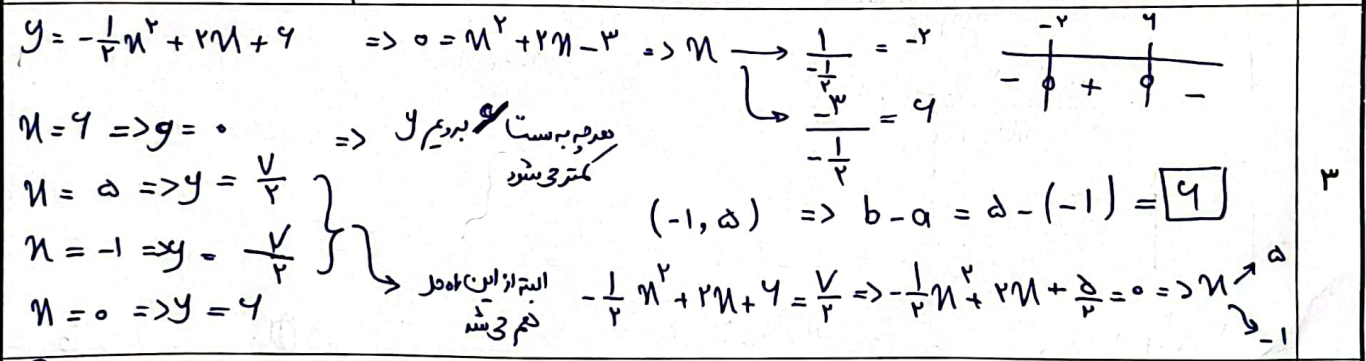 y = -۱/۲ x^۲ + ۲x + ۶ => ۰ = x^۲ + ۲x - ۳ => x → ۱/(-۱/۲) = -۲
↳ -۳/(-۱/۲) = ۶
-۲ ۶
- + -
x = ۶ => y = ۰ => هرچه به سمت ۶ برویم y
کمتر می شود
x = ۵ => y = ۷/۲
x = -۱ => y = ۷/۲
x = ۰ => y = ۶
(-۱, ۵) => b - a = ۵ - (-۱) = ۶
البته از این راه حل
هم می شد
-۱/۲ x^۲ + ۲x + ۶ = ۷/۲ => -۱/۲ x^۲ + ۲x + ۵/۲ = ۰ => x ↗ ۵
↘ -۱
۳